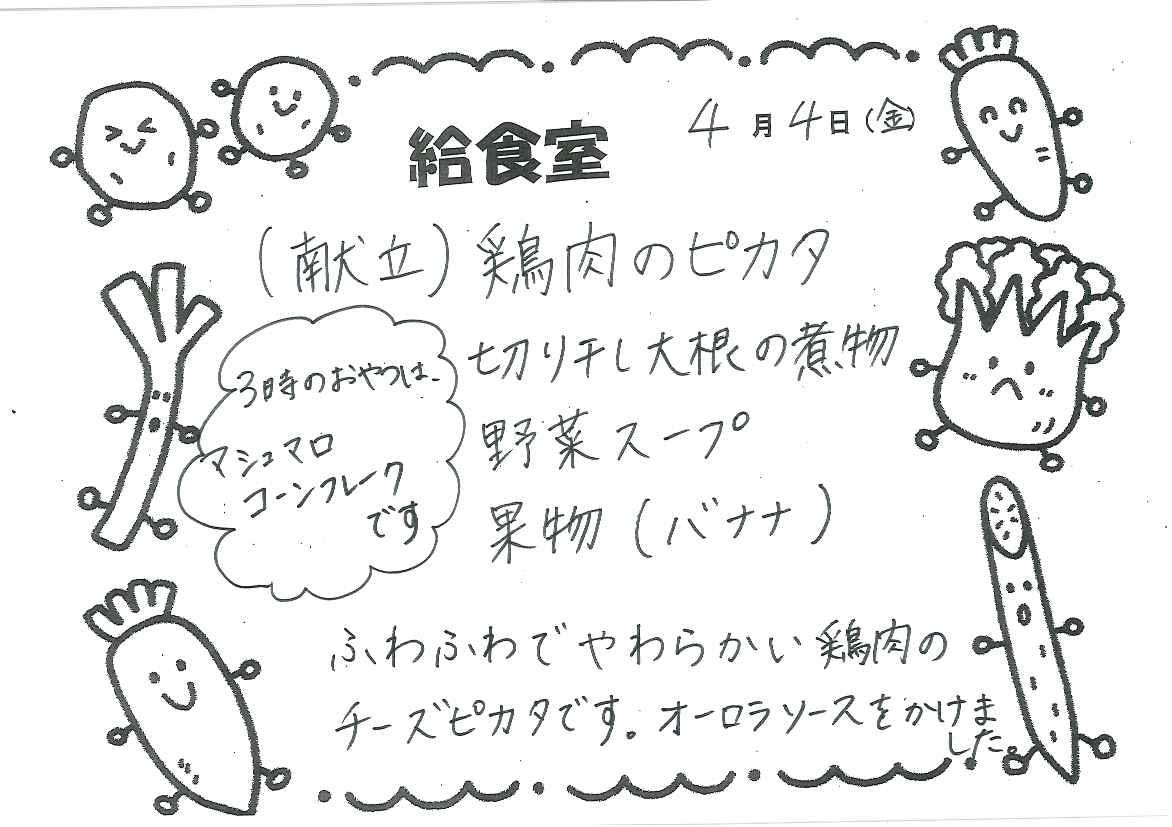 給食室
4月4日(金)
(献立)鶏肉のピカタ
切り干し大根の煮物
野菜スープ
果物(バナナ)
3時のおやつは、
マシュマロ
コーンフレーク
です
ふわふわでやわらかい鶏肉の
チーズピカタです。オーロラソースをかけま
した。